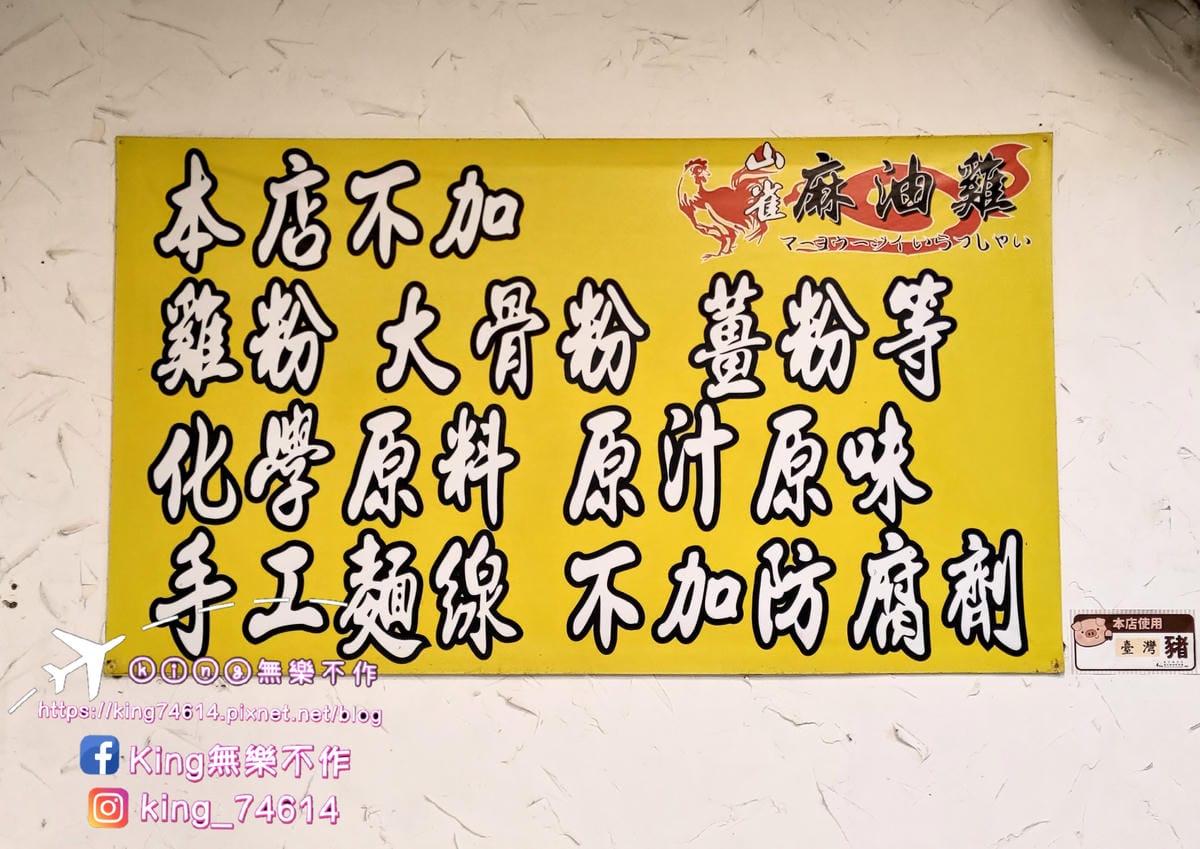 本店不加
山雀 麻油雞
マーヨウージイいらっしゃい
雞粉 大骨粉 薑粉等
化學原料 原汁原味
手工麵線 不加防腐劑
本店使用
臺灣豬
king無樂不作
https://king74614.pixnet.net/blog
King無樂不作
king_74614